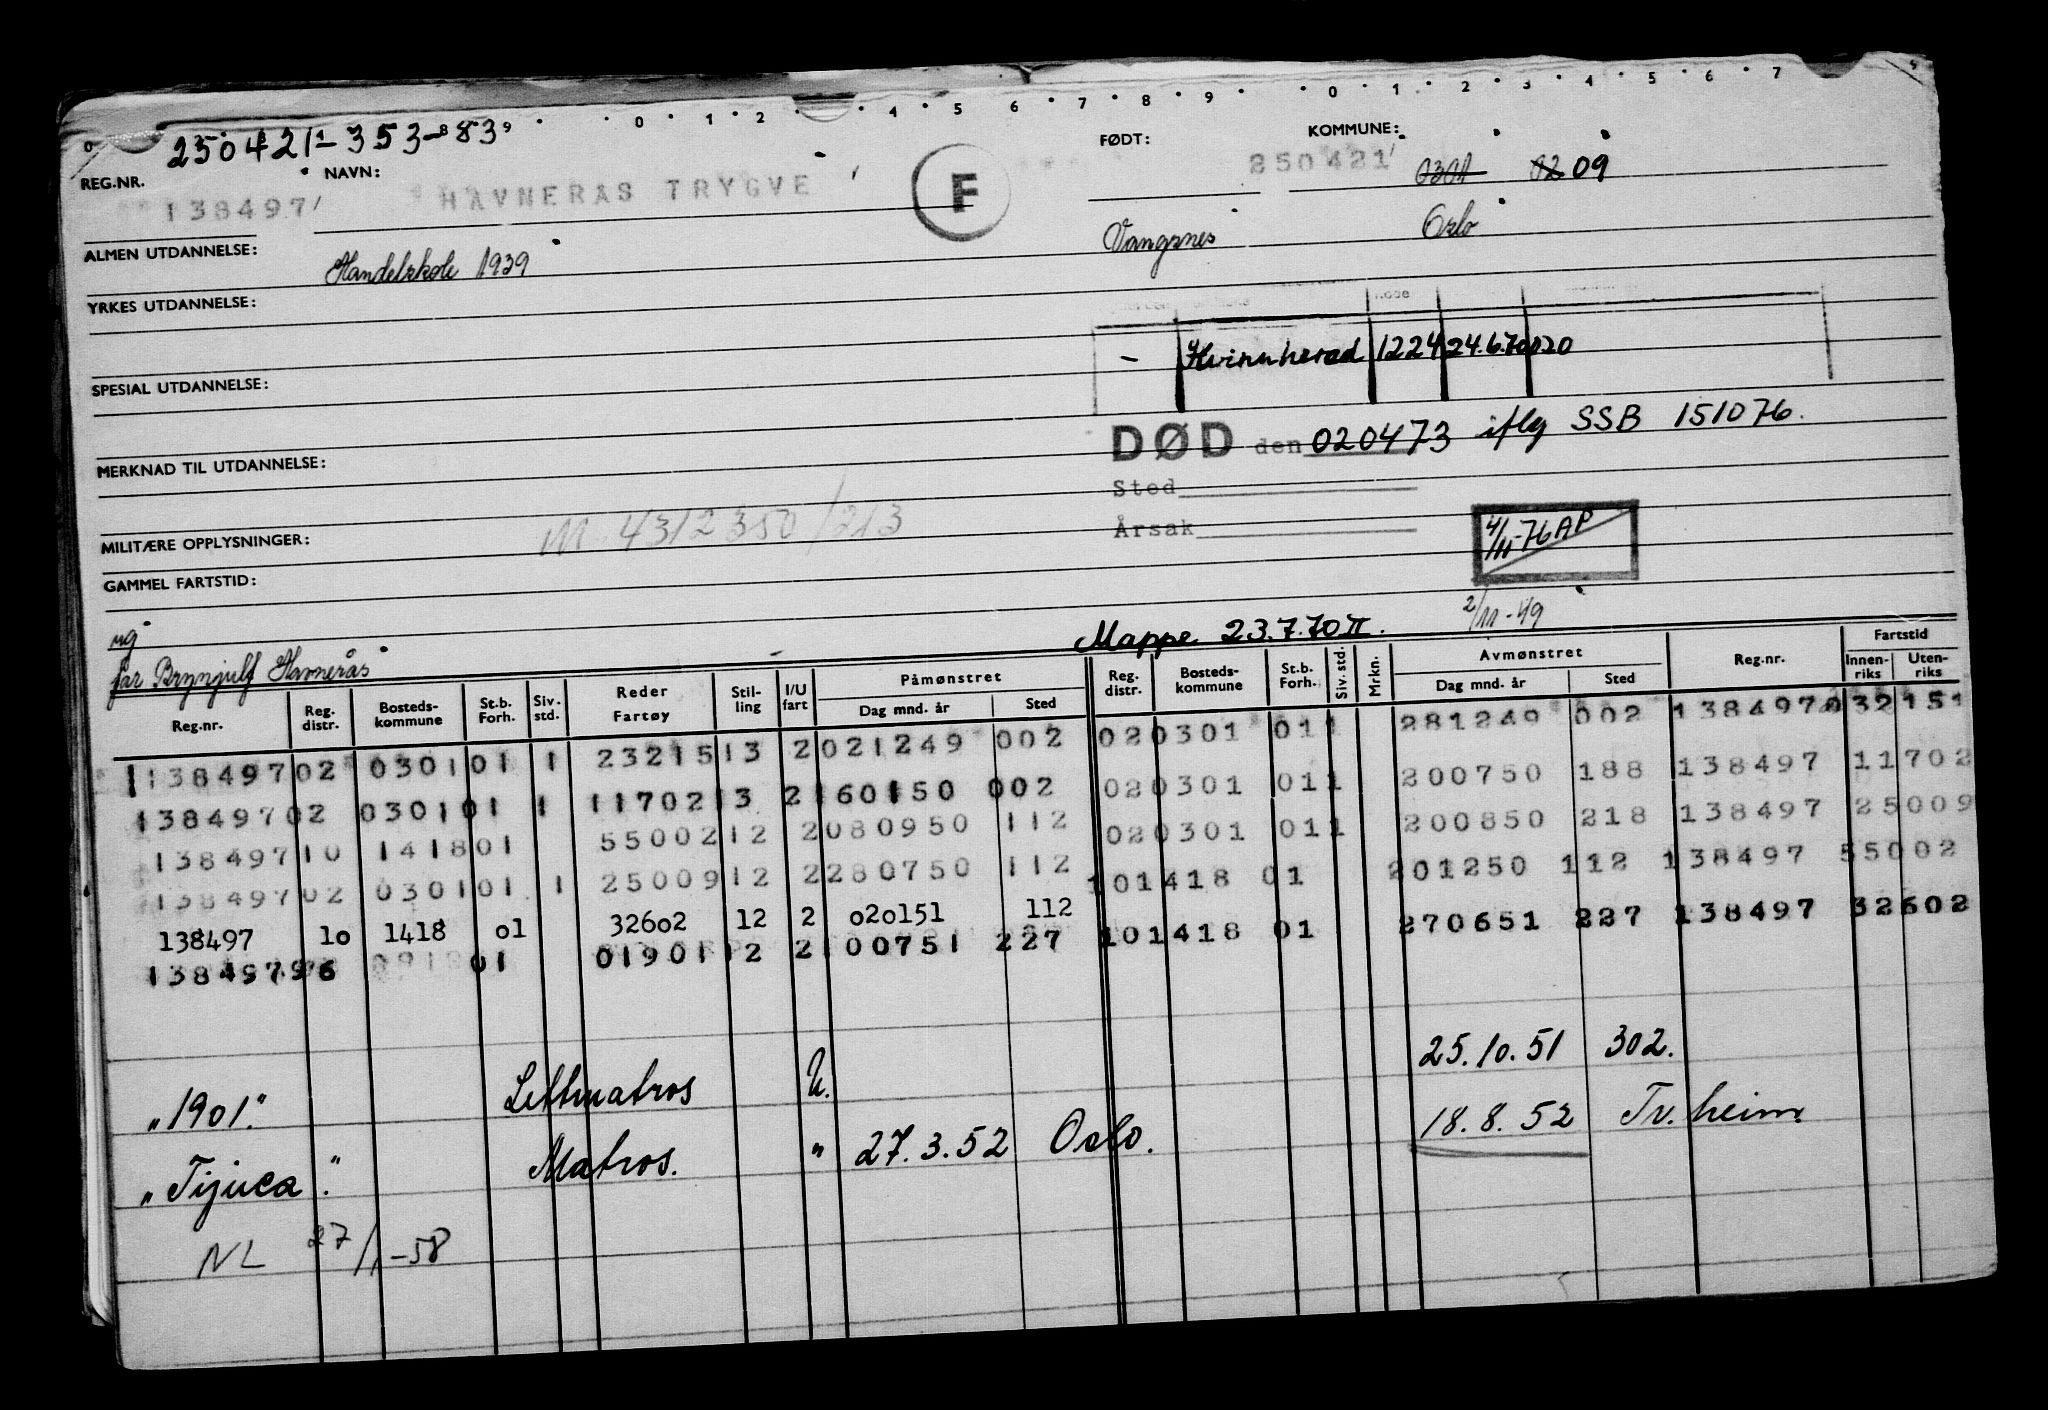 0 1 2 4 5 6 7 8 9 0 1 2 3 4 5 6 7
250421-353-83
REG.NR. NAVN: FØDT: KOMMUNE:
138497 HAVNERAS TRYGVE F 250421 0301 02 09
ALMEN UTDANNELSE: Handelskole 1939 Vangsnes Oslo
YRKES UTDANNELSE:
- Kvinnherad 1224 24.6.70 020
SPESIAL UTDANNELSE:
DØD den 020473 iflg SSB 151076.
MERKNAD TIL UTDANNELSE:
Sted
MILITÆRE OPPLYSNINGER: M 4312350/213 Årsak 4/11-76 AP
GAMMEL FARTSTID:
ug Mappe 23.7.70 II. 2/11-49
far Brynjulf Havnerås
Reg.nr. Reg. distr. Bosteds-kommune St.b. Forh. Siv. std. Reder Fartøy Stil-ling I/U fart Påmønstret Dag mnd. år Sted Reg. distr. Bosteds-kommune St.b. Forh. Siv. std. Mrkn. Avmønstret Dag mnd. år Sted Reg.nr. Fartstid Innen-riks Uten-riks
138497 02 0301 01 1 23215 13 2 021249 002 02 0301 01 1 281249 002 138497 032151
138497 02 0301 01 1 11702 13 2 160150 002 02 0301 01 1 200750 188 138497 11702
138497 10 1418 01 55002 12 2 080950 112 02 0301 01 1 200850 218 138497 25009
138497 02 0301 01 1 25009 12 2 280750 112 10 1418 01 201250 112 138497 55002
138497 10 1418 01 32602 12 2 020151 112 10 1418 01 270651 227 138497 32602
138497 96 01 01901 12 2 100751 227
"1901." Lettmatros U. 25.10.51 302.
"Tijuca". Matros. " 27.3.52 Oslo. 18.8.52 Tr.heim
NL 27/1-58